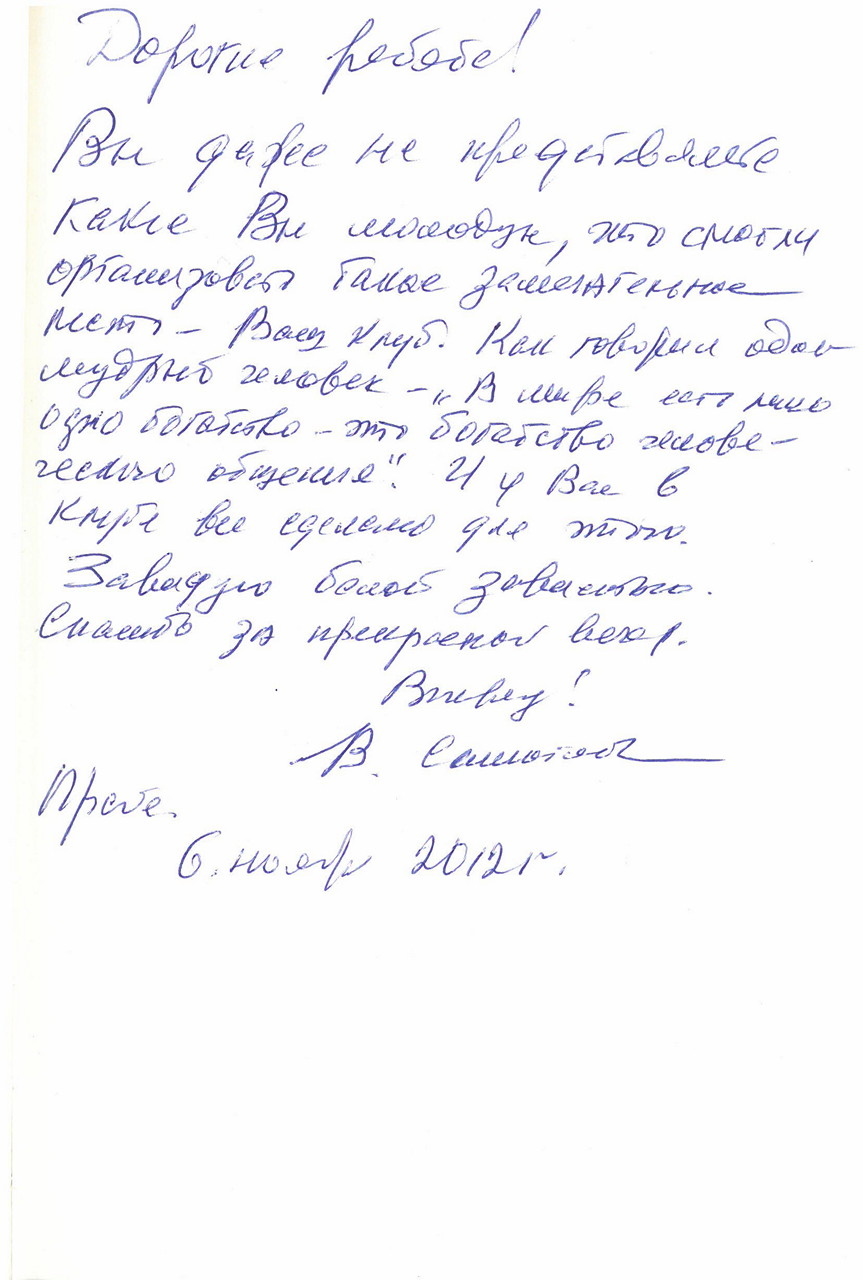 Дорогие ребята!
Вы даже не представляете
какие Вы молодцы, что смогли
организовать такое замечательное
место – Ваш клуб. Как говорил один
мудрый человек – „В мире есть лишь
одно богатство – это богатство челове-
ческого общения“. И у Вас в
клубе все сделано для этого.
Завидую белой завистью.
Спасибо за прекрасный вечер.
Виват!
В.
Прага.
6 ноября 2012 г.